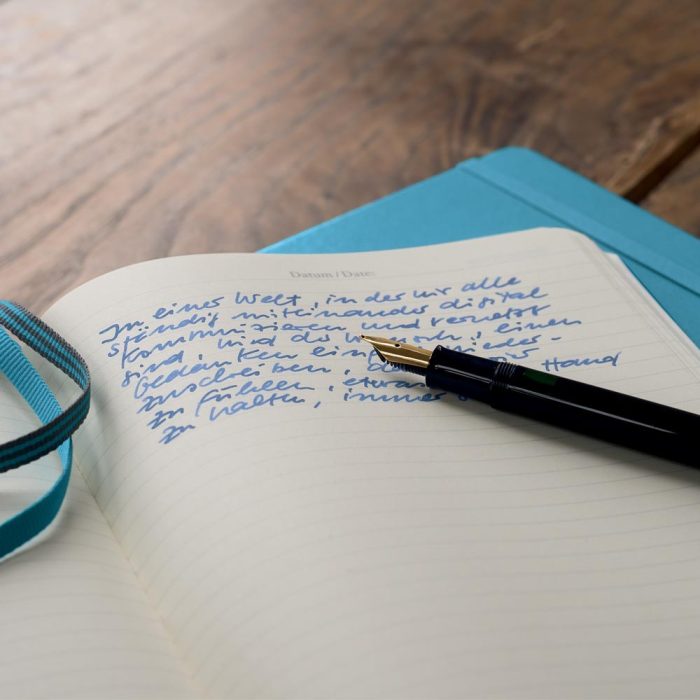 Datum / Date:
In einer Welt, in der wir alle
ständig miteinander digital
kommunizieren und vernetzt
sind, wird der Wunsch, einen
Gedanken einfach nieder-
zuschreiben, das
zu fühlen, etwas Hand
zu halten, immer